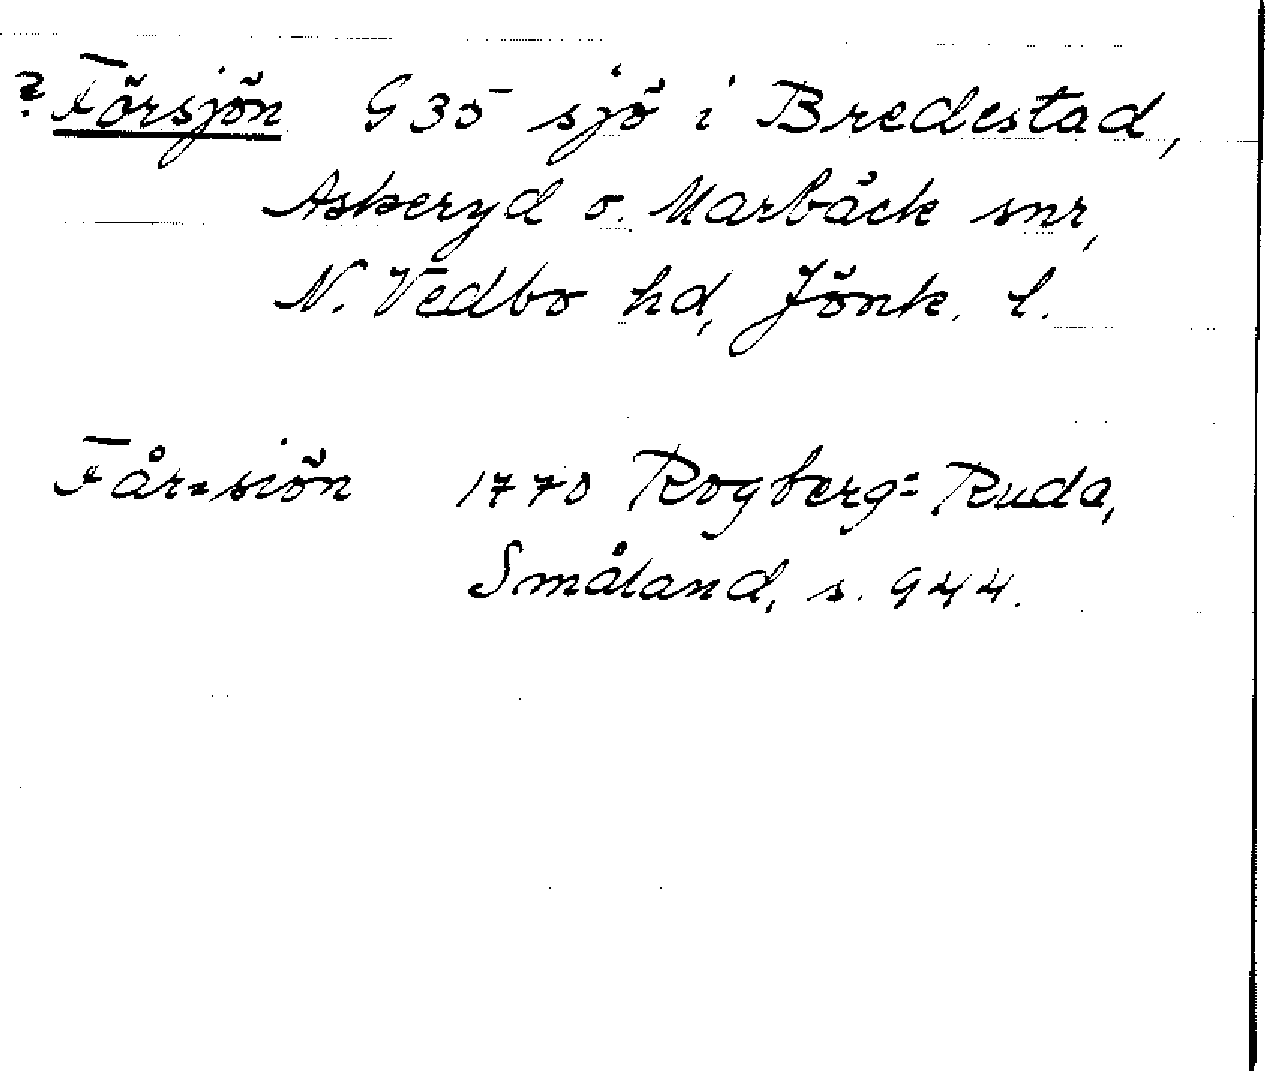 ? Försjön G35 sjö i Bredestad,
Askeryd o. Marbäck snr,
N. Vedbo hd, Jönk. l.
Får=siön 1770 Rogberg=Ruda,
Småland, s. 944.